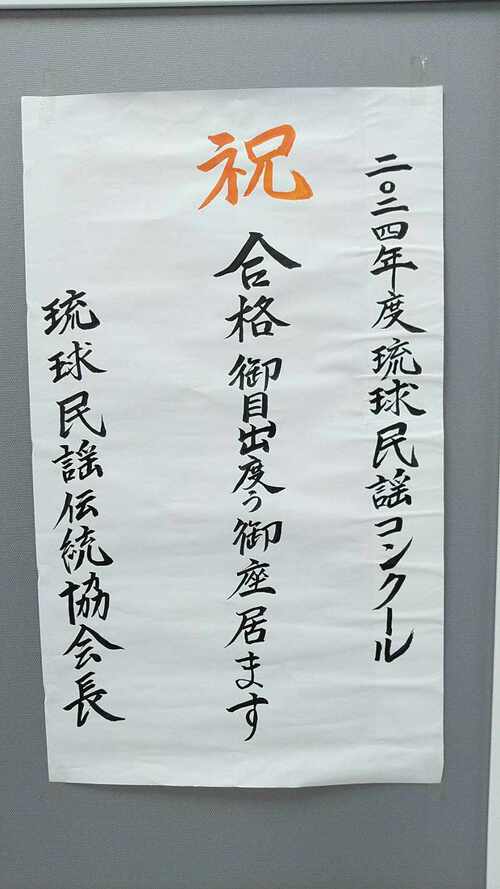 二〇二四年度琉球民謡コンクール
祝
合格御目出度う御座居ます
琉球民謡伝統協会長